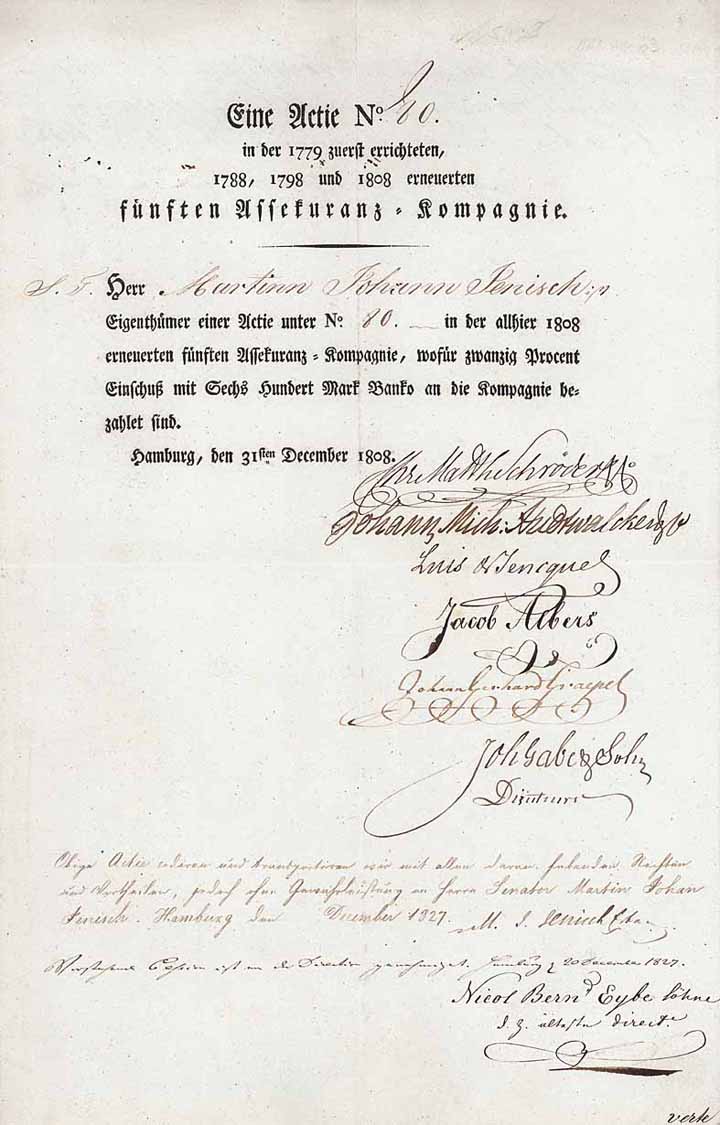 Eine Actie No. 80.
in der 1779 zuerst errichteten,
1788, 1798 und 1808 erneuerten
fünften Assekuranz-Kompagnie.
S. T. Herr Martinn Johann Jenisch
Eigenthümer einer Actie unter No. 80. in der allhier 1808
erneuerten fünften Assekuranz-Kompagnie, wofür zwanzig Procent
Einschuß mit Sechs Hundert Mark Banko an die Kompagnie be-
zahlet sind.
Hamburg, den 31sten December 1808.
Chr. Matth. Schröder & Co
Johann Mich. Hudtwalcker
Luis & Jencquel
Jacob Albers
Johann Gerhard Graepel
Joh Gabe & Sohn
Directeurs
Obige Actie cediren und transportiren wir mit allen daran habenden Rechten
und Vortheilen, jedoch ohne Gewährleistung an Herrn Senator Martin Johan
Jenisch. Hamburg den December 1827. M. J. Jenisch
Vorstehende ist von der Direction genehmiget. Hamburg 20 December 1827.
Nicol Bernd Eybe Söhne
d. z. ältester Direct.